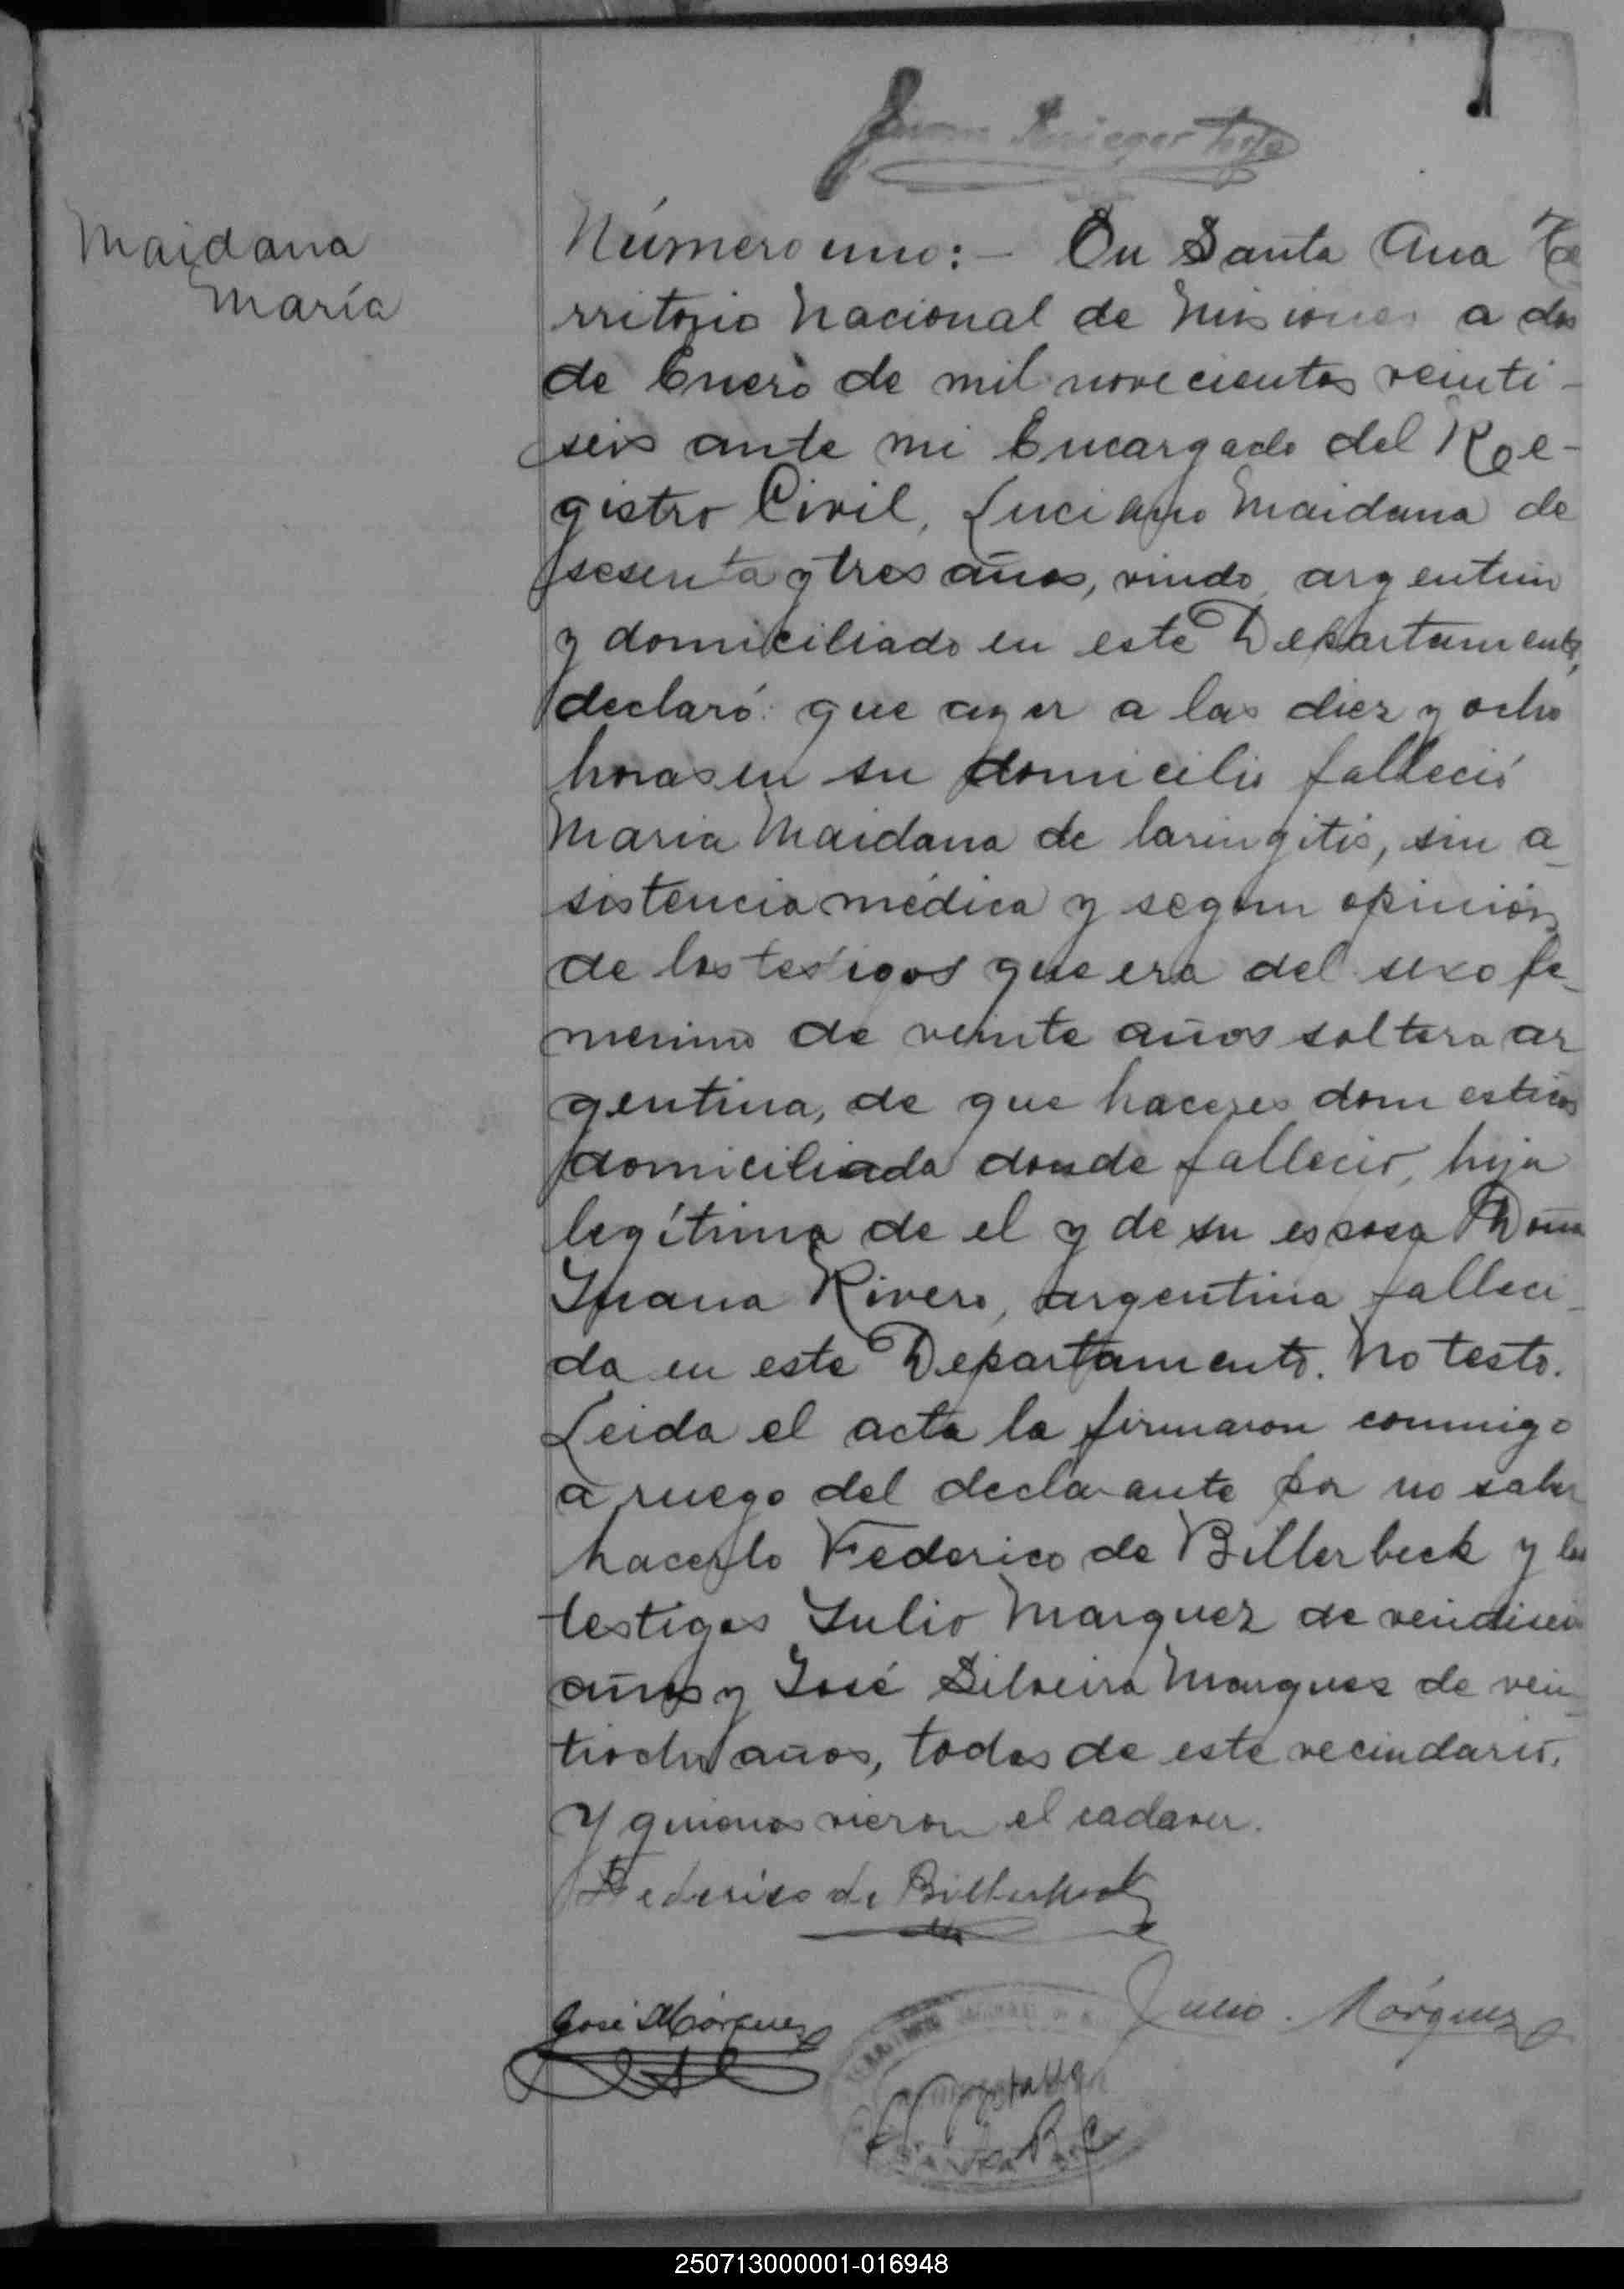 Maidana
María
Número uno:- En Santa Ana Te
rritorio Nacional de Misiones a dos
de Enero de mil novecientos veinti-
seis ante mi Encargado del Re-
gistro Civil, Luciano Maidana de
sesenta y tres años, viudo, argentino
y domiciliado en este Departamento,
declaró: que ayer a las diez y ocho
horas en su domicilio falleció
Maria Maidana de laringitis, sin a-
sistencia médica y segun opinión
de los testigos que era del sexo fe-
menino de veinte años soltera ar
gentina, de que haceres domesticos
domiciliada donde falleció, hija
legítima de el y de su esposa Doña
Juana Rivero, argentina falleci-
da en este Departamento. No testo.
Leida el acta la firmaron conmigo
a ruego del declarante por no saber
hacerlo Federico de Billerbeck y los
testigos Julio Marquez de veintiseis
años y José Silveira Marquez de vein-
tiocho años, todos de este vecindario,
y quienes vieron el cadaver.
Federico de Billerbeck
José Márquez
Julio Márquez
250713000001-016948